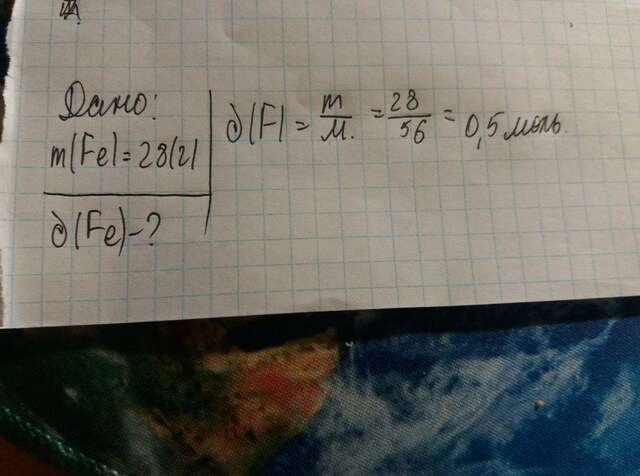 Дано:
m(Fe)=28(г)
∂(Fe)-?
∂(F)=m/M.=28/56=0,5моль.